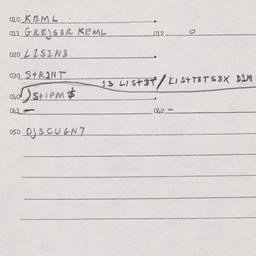 010 KEML
011 GREJSER KEML 012 0
020 LISIN3
030 STRINT
13 LIST3T / LISTT3TS3X DIM
040 JSTIPM$
041 - 042 -
050 DJSCUGN7